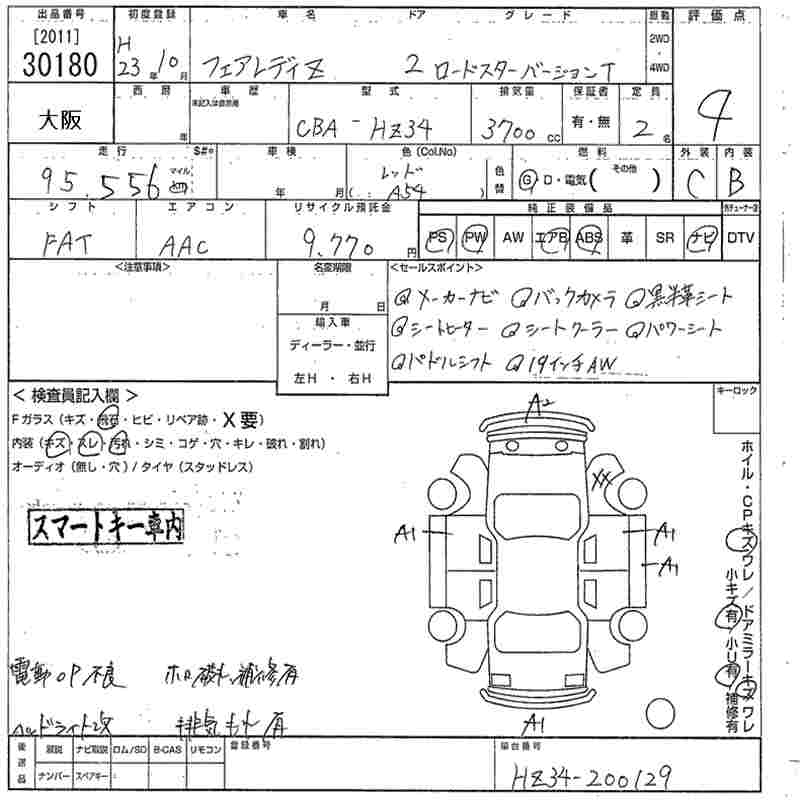 出品番号 初度登録 車名 ドア グレード 駆動 評価点
[2011] 30180 H 23年 10月 フェアレディZ 2 ロードスターバージョンT 2WD・4WD 4
大阪 西暦 年 車歴 未記入は自家用 型式 CBA-HZ34 排気量 3700cc 保証書 有・無 定員 2名
走行 S#* 車検 色(Col.No) 燃料 外装 内装
95,556 マイル km 年 月 レッド (: A54 ) 色替 G D・電気( その他 ) C B
シフト エアコン リサイクル預託金 純正装備品
FAT AAC 9,770円 PS PW AW エアB ABS 革 SR ナビ DTV
<注意事項> 名変期限 月 日 <セールスポイント>
◎メーカーナビ ◎バックカメラ ◎黒半革シート
輸入車
◎シートヒーター ◎シートクーラー ◎パワーシート
ディーラー・並行
◎パドルシフト ◎19インチAW
左H・右H
<検査員記入欄> キーロック
Fガラス(キズ・飛石・ヒビ・リペア跡・X要)
内装(キズ・スレ・汚れ・シミ・コゲ・穴・キレ・破れ・割れ)
オーディオ(無し・穴)/タイヤ(スタッドレス)
スマートキー車内
A2
XX
A1 A1
A1
A1
ホイル・CPキズワレ/ドアミラーキズワレ
小キズ有/小U有/補修有
電動OP不良 ホロ破れ、補修有
ヘッドライト改 排気もれ有
後選品 取説 ナビ取説 ロム/SD B-CAS リモコン 登録番号 車台番号
ナンバー スペアキー HZ34-200129